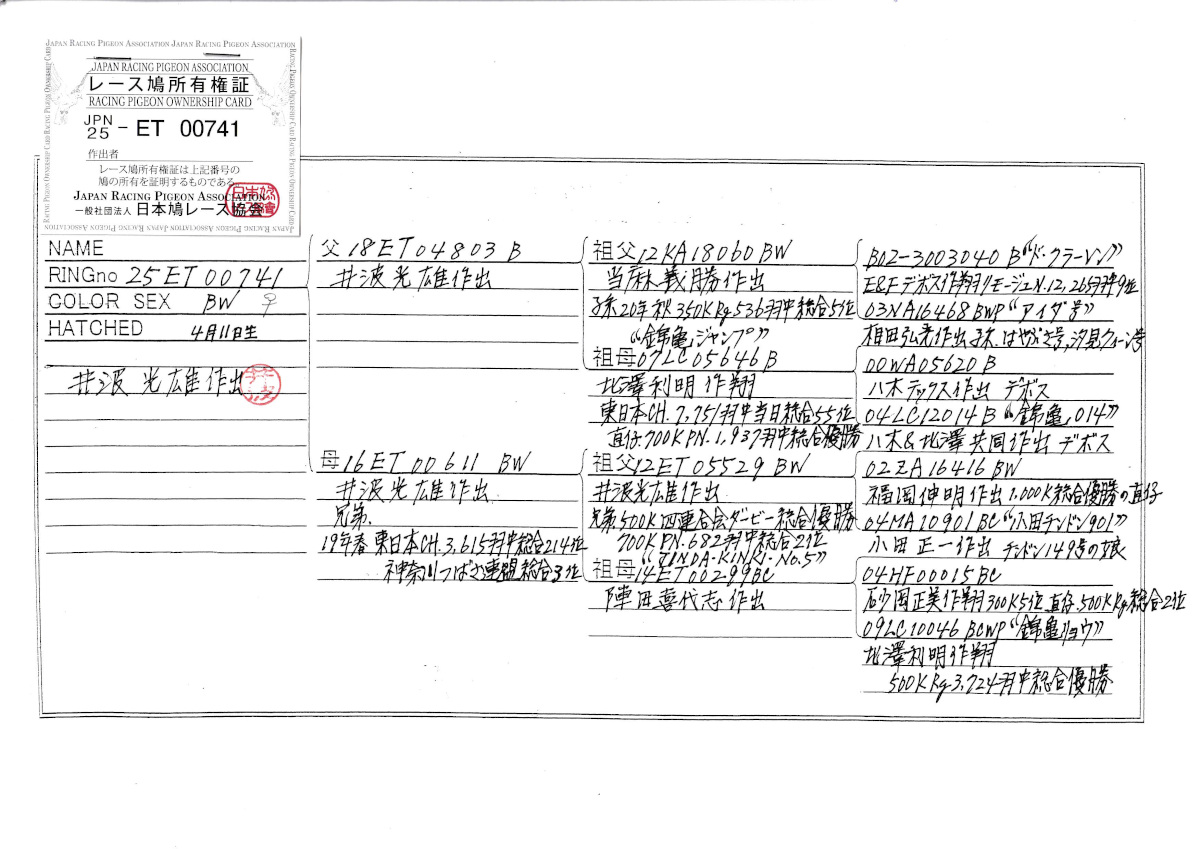 JAPAN RACING PIGEON ASSOCIATION JAPAN RACING PIGEON ASSOCIATION
JAPAN RACING PIGEON ASSOCIATION
レース鳩所有権証
RACING PIGEON OWNERSHIP CARD
JPN
25 - ET 00741
作出者
レース鳩所有権証は上記番号の
鳩の所有を証明するものである
JAPAN RACING PIGEON ASSOCIATION
一般社団法人 日本鳩レース協会
NAME
RINGno 25ET00741
COLOR SEX BW ♀
HATCHED 4月11日生
井波 光雄作出
父 18ET04803 B
井波光雄作出
母 16ET00611 BW
井波光雄作出
兄弟.
19年春 東日本CH.3,615羽中総合214位
神奈川つばさ連盟総合3位
祖父 12KA18060 BW
当麻義勝作出
子孫20年秋350KRg536羽中総合5位
"錦亀ジャンプ"
祖母 07LC05646 B
北澤利明作翔
東日本CH.7,751羽中当日総合55位
直仔700KPN.1,937羽中総合優勝
祖父 12ET05529 BW
井波光雄作出
兄弟500K四連合会ダービー総合優勝
700KPN.682羽中総合2位
"JINDA・KINKI・No.5"
祖母 14ET00299 BC
陣田喜代志作出
B02-3003040 B "ド・クラーマン"
E&Fデボス作翔リモージュN.12,265羽中9位
03NA16468 BWP "アイダ号"
相田弘光作出 子系.はやぶさ号,汐見クィーン号
00WA05620 B
八木テックス作出 デボス
04LC12014 B "錦亀014"
八木&北澤共同作出 デボス
02ZA16416 BW
福岡伸明作出1,000K総合優勝の直仔
04MA10901 BC "小田チンドン901"
小田正一作出 チンドン149号の娘
04HF00015 BC
砂岡正美作翔300K5位 直仔.500KRg総合2位
09LC10046 BCWP "錦亀リョウ"
北澤利明作翔
500KRg3,724羽中総合優勝